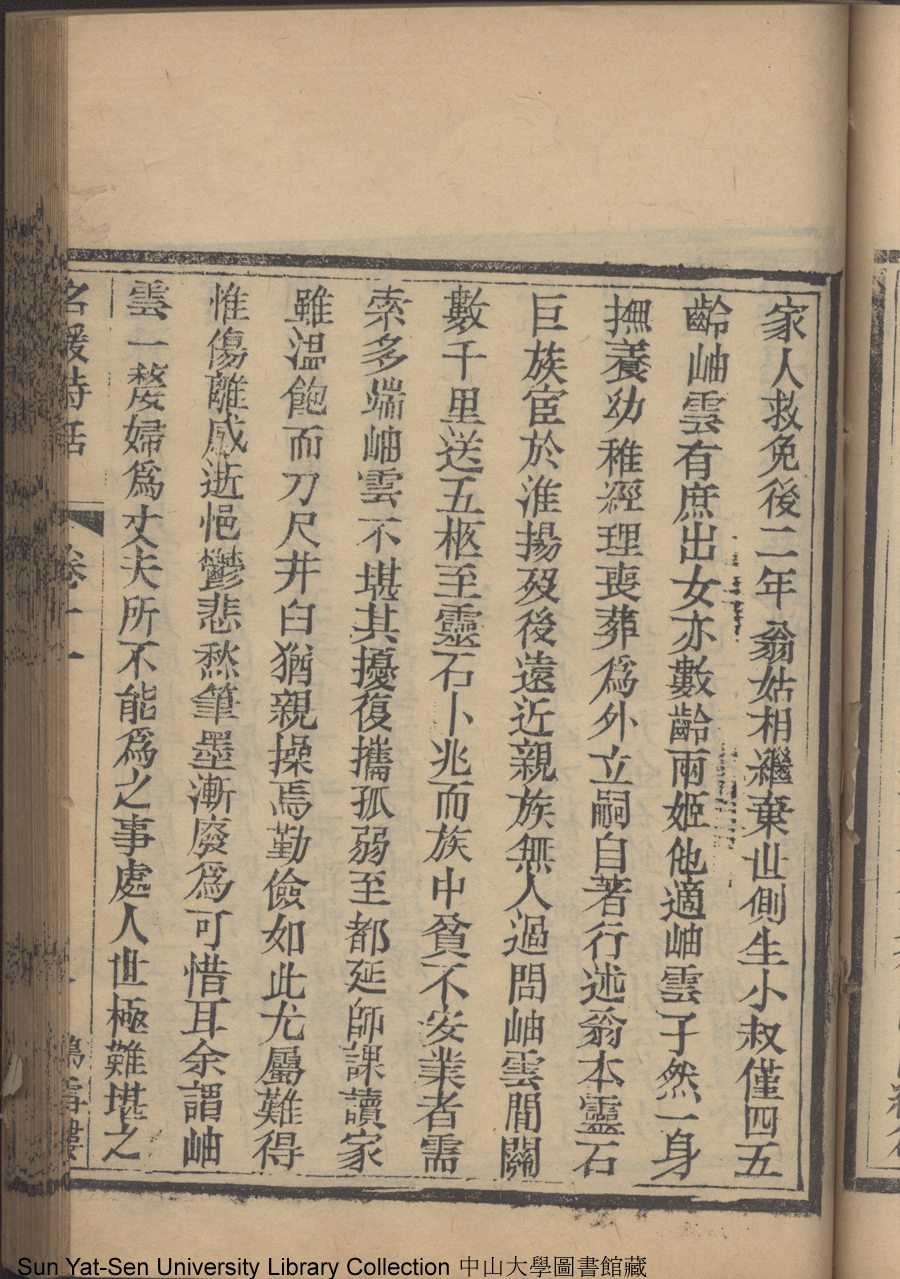 家人救免後二年翁姑相繼棄世側生小叔僅四五
齡岫雲有庶出女亦數齡兩姬他適岫雲孑然一身
撫養幼稚經理喪葬爲外立嗣自著行述翁本靈石
巨族宦於淮揚歿後遠近親族無人過問岫雲間關
數千里送五柩至靈石卜兆而族中貧不安業者需
索多端岫雲不堪其擾復攜孤弱至都延師課讀家
雖溫飽而刀尺井臼猶親操焉勤儉如此尤屬難得
惟傷離感逝悒鬱悲愁筆墨漸廢爲可惜耳余謂岫
雲一嫠婦爲丈夫所不能爲之事處人世極難堪之
名媛詩話 卷十一 鴻雪樓
Sun Yat-Sen University Library Collection 中山大學圖書館藏